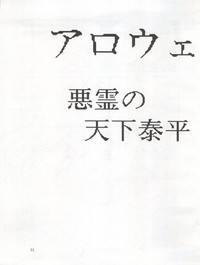 アロウェ
悪霊の
天下泰平